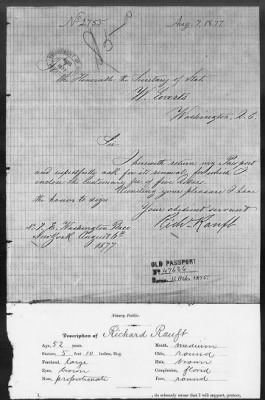 No 2755
Aug. 7, 1877.
the Honorable the Secretary of State
W. Evarts
Washington, D. C.
Sir
I herewith return my Passport
and respectfully ask for its renewal, for which I
enclose the customary fee of five dollars.
Awaiting your pleasure I have
the honor to sign
Your obedient servant
Richd. Rauft
E. Washington Place
New York August 6th
1877
OLD PASSPORT
No 47686
Notary Public.
Description of Richard Rauft
Age, 52 years.
Stature, 5 feet 10 inches, Eng.
Forehead, large
Eyes, brown
Nose, proportionate
Mouth, medium
Chin, round
Hair, brown
Complexion, florid
Face, round
I, do solemnly swear that I will support, protect,